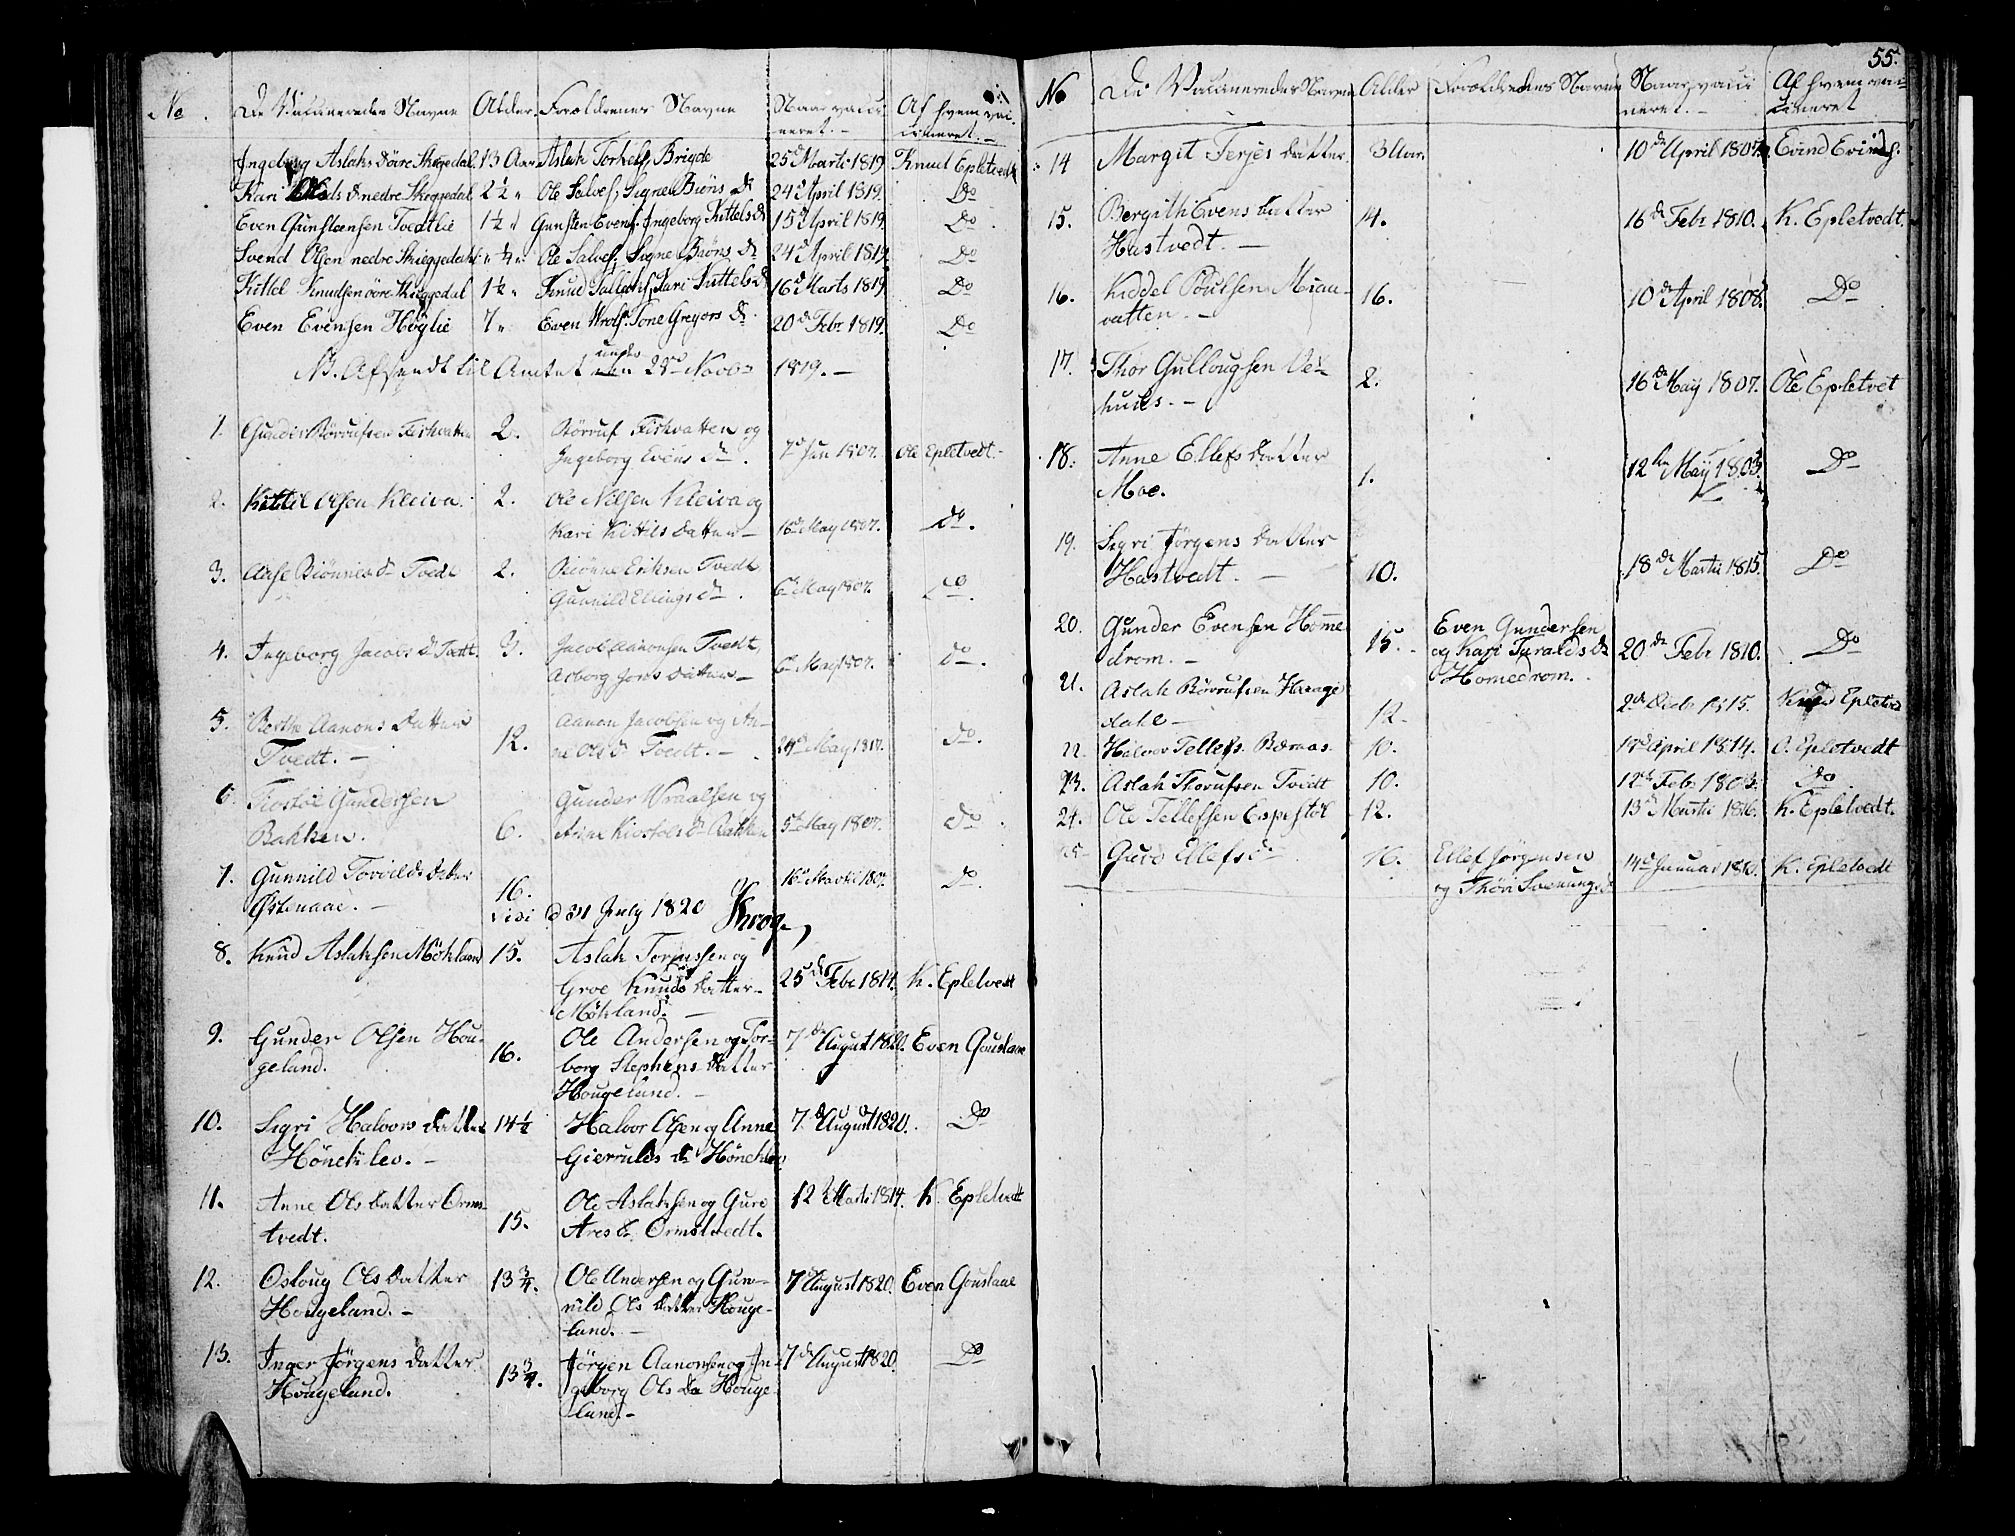 No. De Vaccineredes Navne Alder. Forældrenes Navne Naar vacci- Af hvem vac-
neret.- cineret.-
Ingeborg Aslaksd öire Skeggedal 13 Aar Aslak Torkels. Brigde 25d Marti 1819 Knud Epletvedt
Kari Olsd nedre Skeggedal 2½ " Ole Salves. Signe Biöns D 24d April 1819. Do
Even Gunsteensen Tvedtlie 1½ " Gunsten Evens. Ingeborg Kittels D 15d April 1819. Do
Svend Olsen nedre Skieggedal " ¼ " Ole Salves. Signe Biöns D 24d April 1819. Do
Kittel Knudsen öire Skieggedal 1½ " Knud Kari Kittels D 16d Marts 1819 Do
Even Evensen Höglie 7 " Even Wrolfs. Tone Gregors D. 20de Febr 1819. Do
NB. Afsendt til Amtet under 28de Novbr 1819. -
1. Gunder Börrufsen Fiskvatten 2. Börruf Fiskvatten og
Ingeborg Evens D. 7d Jun 1807. Ole Epletvedt.
2. Kittil Olsen Kleiva. 2. Ole Nilsen Kleiva og
Kari Kittils Datter - 16d May 1807. Do.
3. Aase Biönnes D Tvedt 2. Biönne Eriksen Tvedt
Gunnild Ellings D. 6d May 1807. Do.
4. Ingeborg Jacobs D Tvedt. 3. Jacob Aanonsen Tvedt,
Asborg Jons Datter - 6d May 1807. Do.
5. Berthe Aanons Datter
Tvedt. - 12. Aanon Jacobsen og An-
ne Ols D Tvedt. - 24d May 1817. Do.
6. Kiostol Gundersen
Bakken. 6. Gunder Wraalsen og
Anne Kiostols D Bakken 5d May 1807. Do
7. Gunnild Tovilds datter
Östenaae. - 16. 16d Martii 1807. Do.
Vidi d 31 July 1820 Krog
8. Knud Aslaksen Mökland 15. Aslak Torjussen og
Groe Knuds Datter -
Mökland. - 25de Febr 1814. K. Epletvedt
9. Gunder Olsen Hou-
geland. 16. Ole Andersen og Tor-
borg Stephens Datter
Hougeland. - 7de August 1820. Even Gouslaae
10. Sigri Halvors datter
Hönchlev. - 14½ Halvor Olsen og Anne
Gierrulds D Hönchlev 7de August 1820. Do
11. Anne Ols Datter Orms-
tvedt. 15. Ole Aslaksen og Guro
Ares D. Ormstvedt. 12 Marti 1814. K. Epletvedt
12. Oslaug Ols Datter
Hougeland. - 13¾. Ole Andersen og Gun-
nild Ols Datter Houge-
land. - 7de August 1820. Even Gouslaae
13. Inger Jörgens Datter
Hougeland. 13¾. Jörgen Aanonsen og In-
geborg Ols Da Houge-
land. - 7de August 1820 Do
55.
No De Vaccineredes Navne Alder Forældrenes Navne Naar vacci- Af hvem vac-
neret. - cineret
14 Margit Terjes datter. 3 Aar. 10de April 1807. Evind Evinds.
15. Bergith Evens Datter
Hastvedt. - 14. 16de Febr 1810. K. Epletvedt.
16. Kiddel Poulsen Miau-
vatten. - 16. 10de April 1808. Do
17. Thor Gullougsen Ve-
huus. - 2. 16de May 1807. Ole Epletvet
18. Anne Ellefs datter
Moe. 1. 12te May 1803. Do
19. Sigri Jörgens datter
Hastvedt. - 10. 18de Martii 1815. Do
20. Gunder Evensen Home
drom. - 15. Even Gundersen
og Kari Taralds D
Homedrom. 20de Febr 1810. Do
21. Aslak Börrufsen Haage
dahl - 12. 2de Decb 1815. Knud Epletved
22. Halvor Tellefs. Bærnas. 10. 17d April 1814. O. Epletvedt
23. Aslak Thorufsen Tvedt 10. 12te Febr 1803. Do
24. Ole Tellefsen Espestöl 12. 13d Martii 1816. K. Epletvedt.
25 Guro Ellefs D 16. Ellef Jörgensen
og Thöri Svenungs D 14d Januar 1810. K. Epletvedt